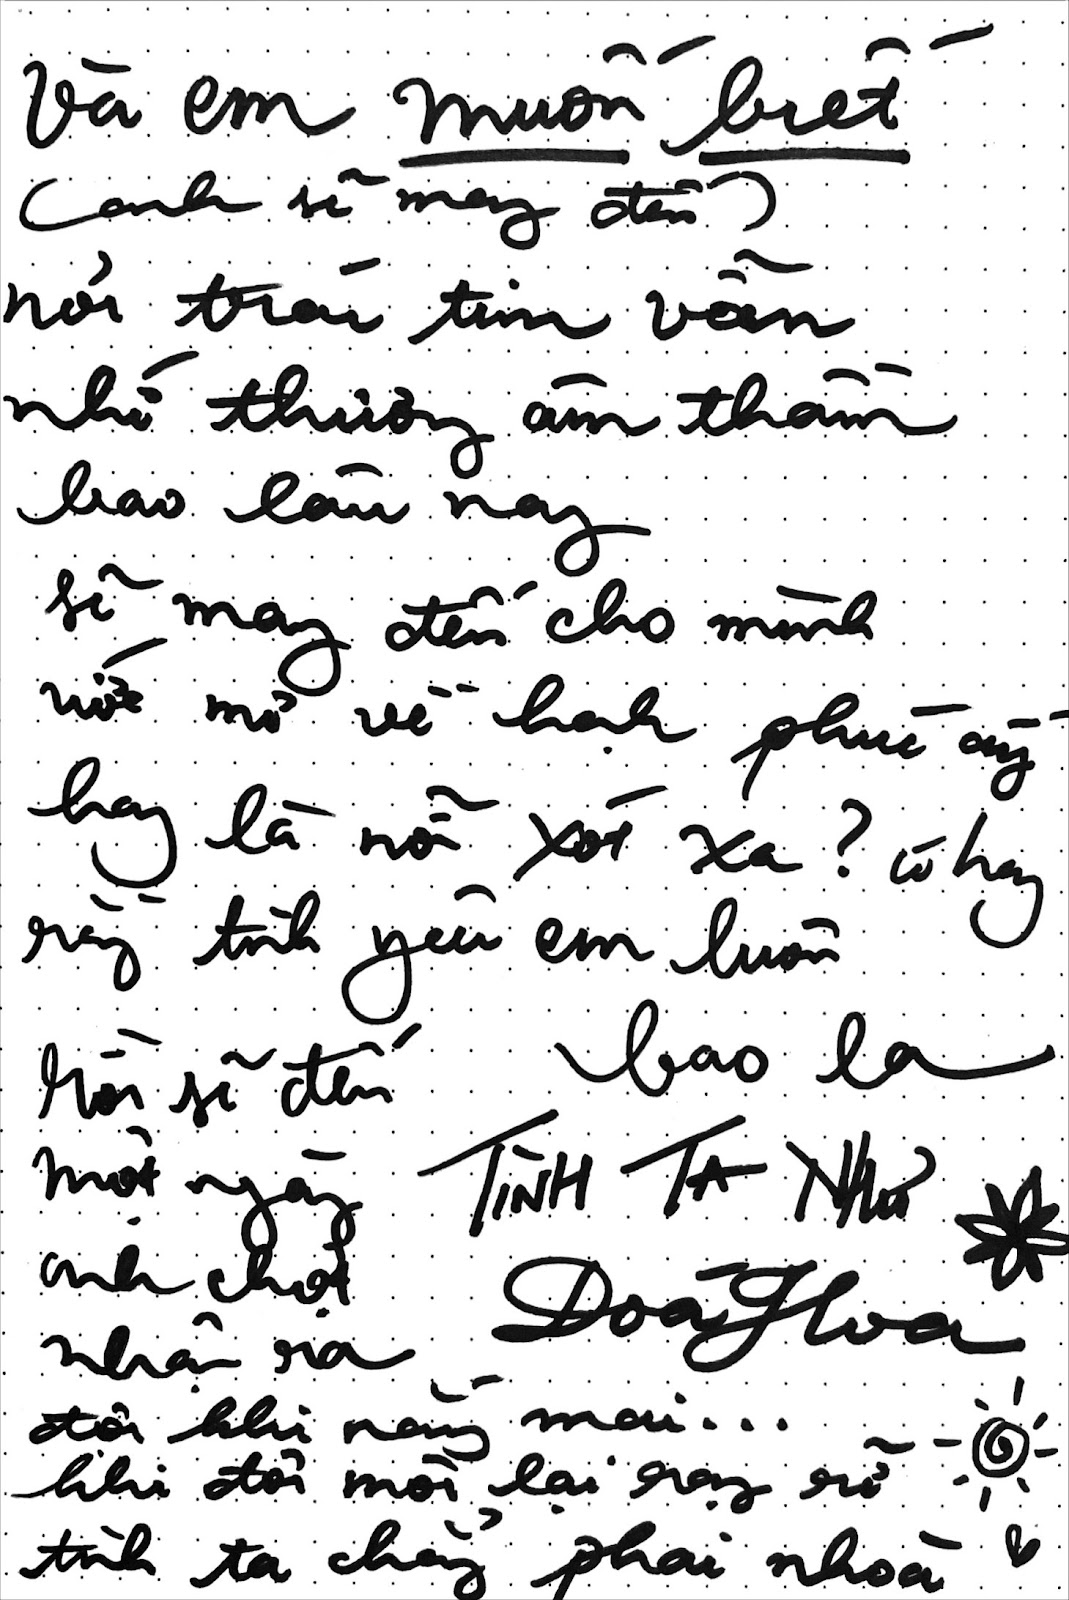 Và em muốn biết
(anh sẽ may đến?)
nơi trái tim vẫn
nhớ thương âm thầm
bao lâu nay
sẽ may đến cho mình
ước mơ về hạnh phúc ấy
hay là nỗi xót xa? có hay
rằng tình yêu em luôn
bao la
rồi sẽ đến
một ngày
anh chợt
nhận ra
TÌNH TA NHƯ
Đoá Hoa
đôi khi nắng mai...
khi đôi môi lại rạng rỡ
tình ta chẳng phai nhoà